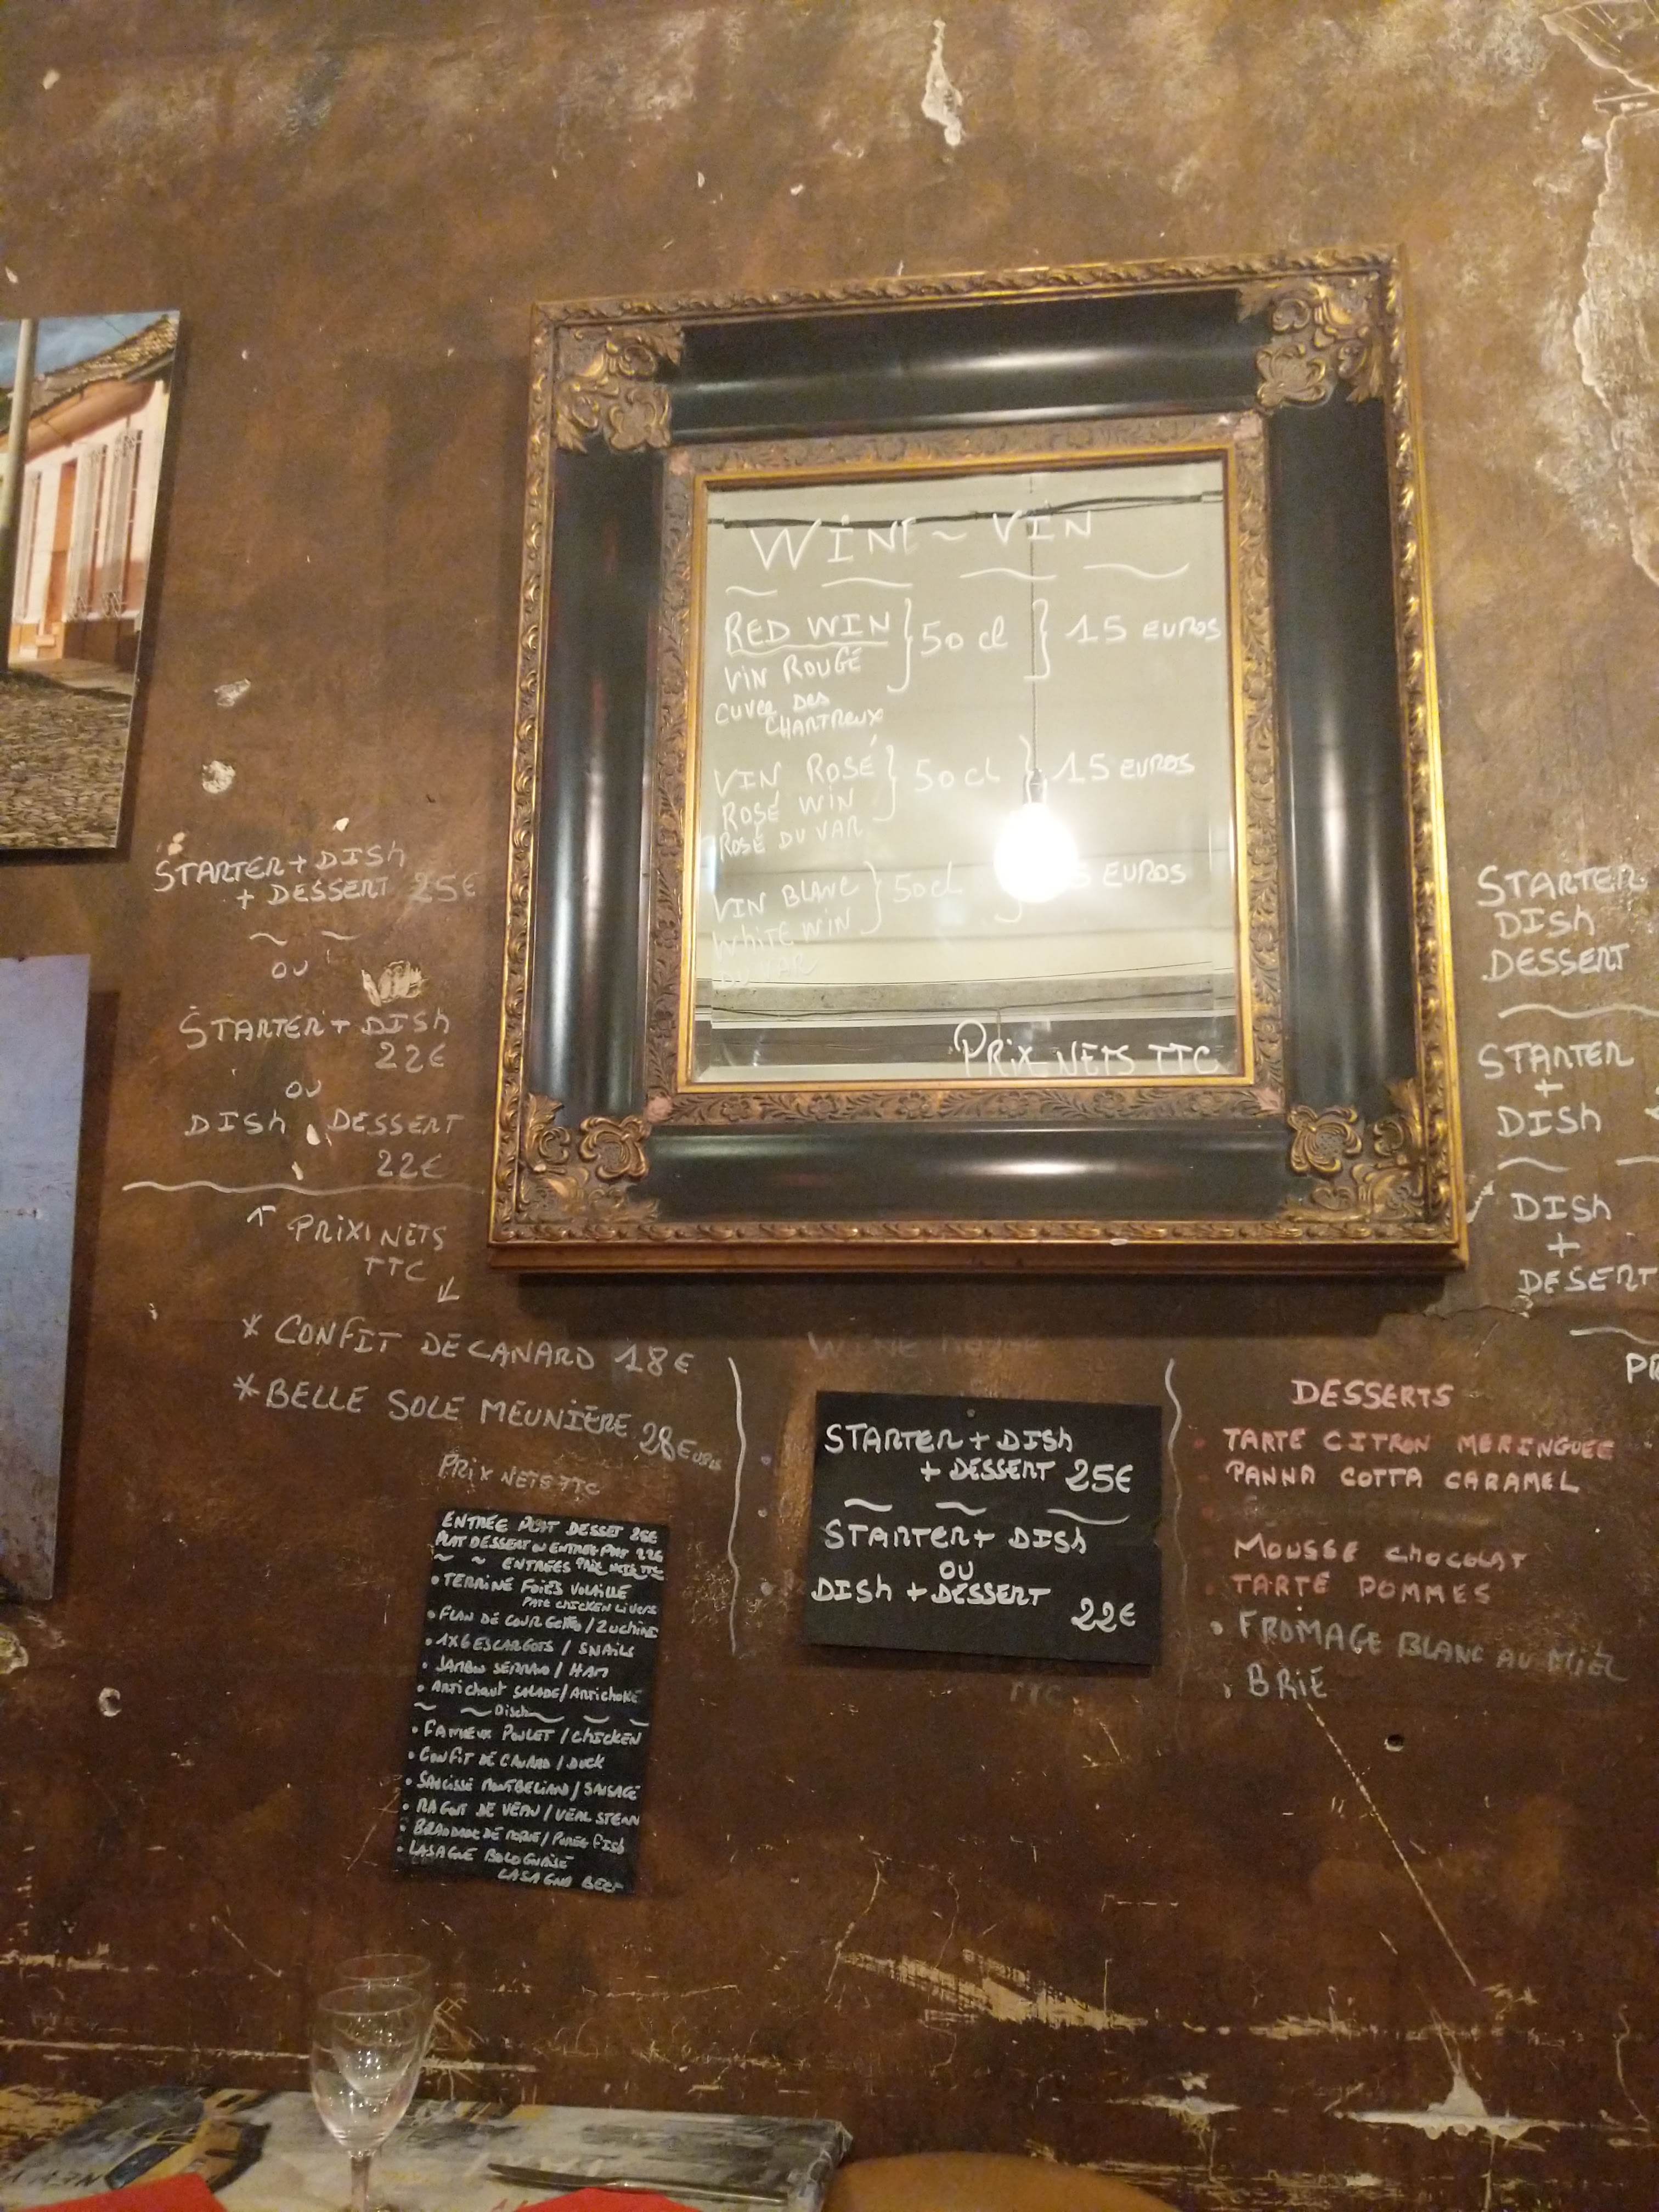 WINE ~ VIN
RED WIN } 50 cl } 15 EUROS
VIN ROUGE
CUVEE DES
CHARTREUX
VIN ROSÉ } 50 cl } 15 EUROS
ROSÉ WIN
ROSÉ DU VAR
VIN BLANC } 50 cl 5 EUROS
WHITE WIN
DU VAR
PRIX NETS TTC
STARTER + DISH
+ DESSERT 25€
OU
STARTER + DISH
22€
OU
DISH DESSERT
22€
PRIX NETS
TTC
* CONFIT DE CANARD 18€
* BELLE SOLE MEUNIÈRE 28 EUROS
PRIX NETS TTC
ENTRÉE PLAT DESSET 25€
PLAT DESSERT OU ENTREE PLAT 22€
~ ~ ENTREES PRIX NETS TTC
• TERRINE FOIES VOLAILLE
PATE CHICKEN LIVERS
• FLAN DE COURGETTES / ZUCHINI
• 1X6 ESCARGOTS / SNAILS
• JAMBON SERRANO / HAM
• ARTICHAUT SALADE / ARTICHOKE
~ ~ Disch ~ ~ ~
• FAMEUX POULET / CHICKEN
• CONFIT DE CANARD / DUCK
• SAUCISSE MONTBELIARD / SAUSAGE
• RAGOUT DE VEAU / VEAL STEAW
• BRANDADE DE MORUE / PUREE FISH
• LASAGNE BOLOGNAISE
LASAGNA BEEF
WINE ROUGE
STARTER + DISH
+ DESSERT 25€
STARTER + DISH
OU
DISH + DESSERT
22€
TTC
DESSERTS
• TARTE CITRON MERINGUEE
• PANNA COTTA CARAMEL
MOUSSE CHOCOLAT
• TARTE POMMES
• FROMAGE BLANC AU MIEL
• BRIE
STARTER
DISH
DESSERT
STARTER
+
DISH
DISH
+
DESERT